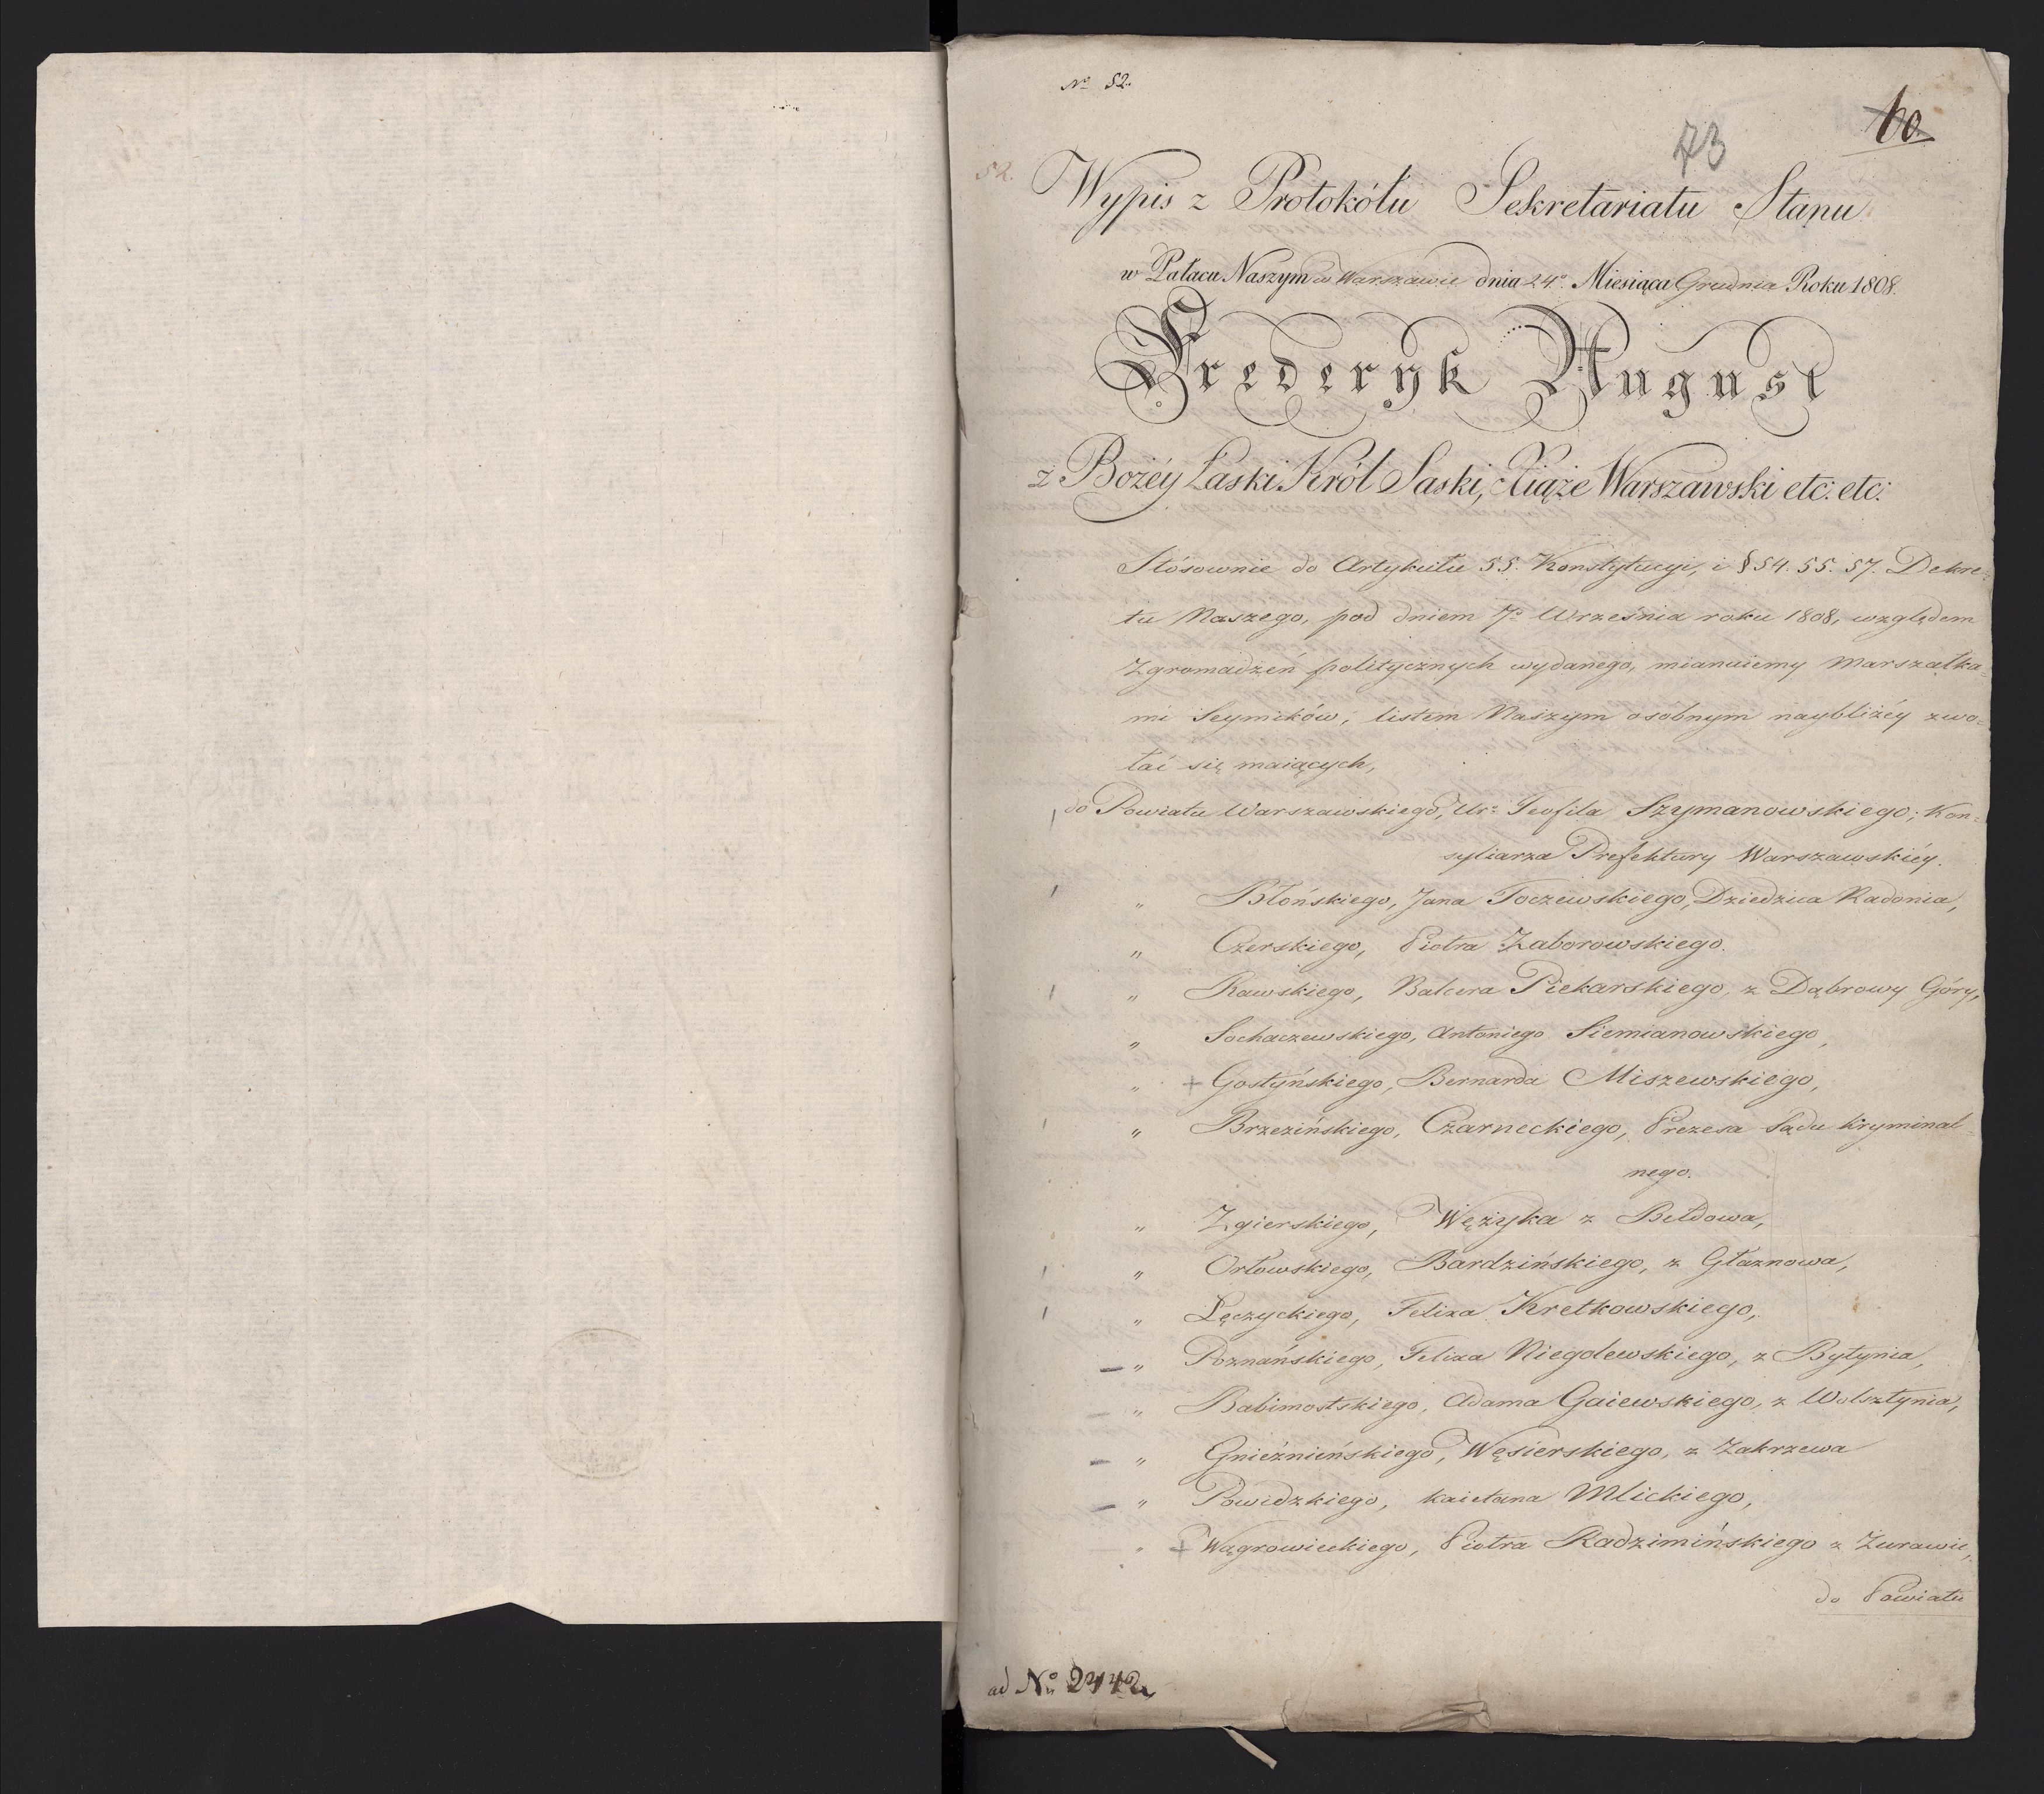 No 52.
60
73
52.
Wypis z Protokółu Sekretariatu Stanu
w Pałacu Naszym w Warszawie dnia 24o Miesiąca Grudnia Roku 1808.
Frederyk August
z Bożéy Łaski Król Saski, Xiąże Warszawski etc: etc:
Stósownie do Artykułu 55. Konstytucyi, i § 54. 55. 57. Dekre=
tu Naszego, pod dniem 7o Września roku 1808, względem
Zgromadzeń politycznych wydanego, mianuiemy Marszałka=
mi Seymików, listem Naszym osobnym naybliżéy zwo=
łać się maiących,
do Powiatu Warszawskiego, Ur: Teofila Szymanowskiego, Kon=
syliarza Prefektury Warszawskiéy.
" Błońskiego, Jana Toczewskiego, Dziedzica Radonia,
" Czerskiego, Piotra Zaborowskiego.
" Rawskiego, Balcera Piekarskiego, z Dąbrowy Góry,
" Sochaczewskiego, Antoniego Siemianowskiego,
" + Gostyńskiego, Bernarda Miszewskiego,
" Brzezińskiego, Czarneckiego, Prezesa Sądu Kryminal=
nego.
" Zgierskiego, Wężyka z Bełdowa,
" Orłowskiego, Bardzińskiego, z Głaznowa,
" Łęczyckiego, Felixa Kretkowskiego,
" Poznańskiego, Felixa Niegolewskiego, z Bytynia,
" Babimostskiego, Adama Gaiewskiego, z Wolsztynia,
" Gnieźnieńskiego, Węsierskiego, z Zakrzewa
" Powidzkiego, Kaietana Mlickiego,
" + Wągrowieckiego, Piotra Radzimińskiego z Żurawic,
do Powiatu
ad No 2442